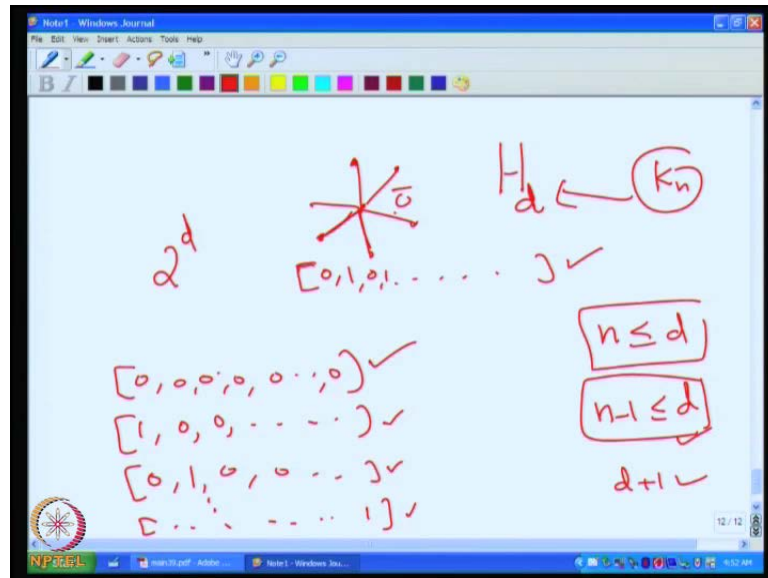 Note1 - Windows Journal
File Edit View Insert Actions Tools Help
B I
H_d ← K_n
0̅
2^d
[0,1,0,1. . . . . . ] ✓
n ≤ d
[0,0,0,0,0..,0) ✓
n-1 ≤ d ✓
[1,0,0,. . . - . . ) ✓
[0,1,0,0 . . . ] ✓
d+1 ✓
[. . . . . . . 1] ✓
12 / 12
NPTEL
main39.pdf - Adobe ...
Note1 - Windows Jou...
9:52 AM